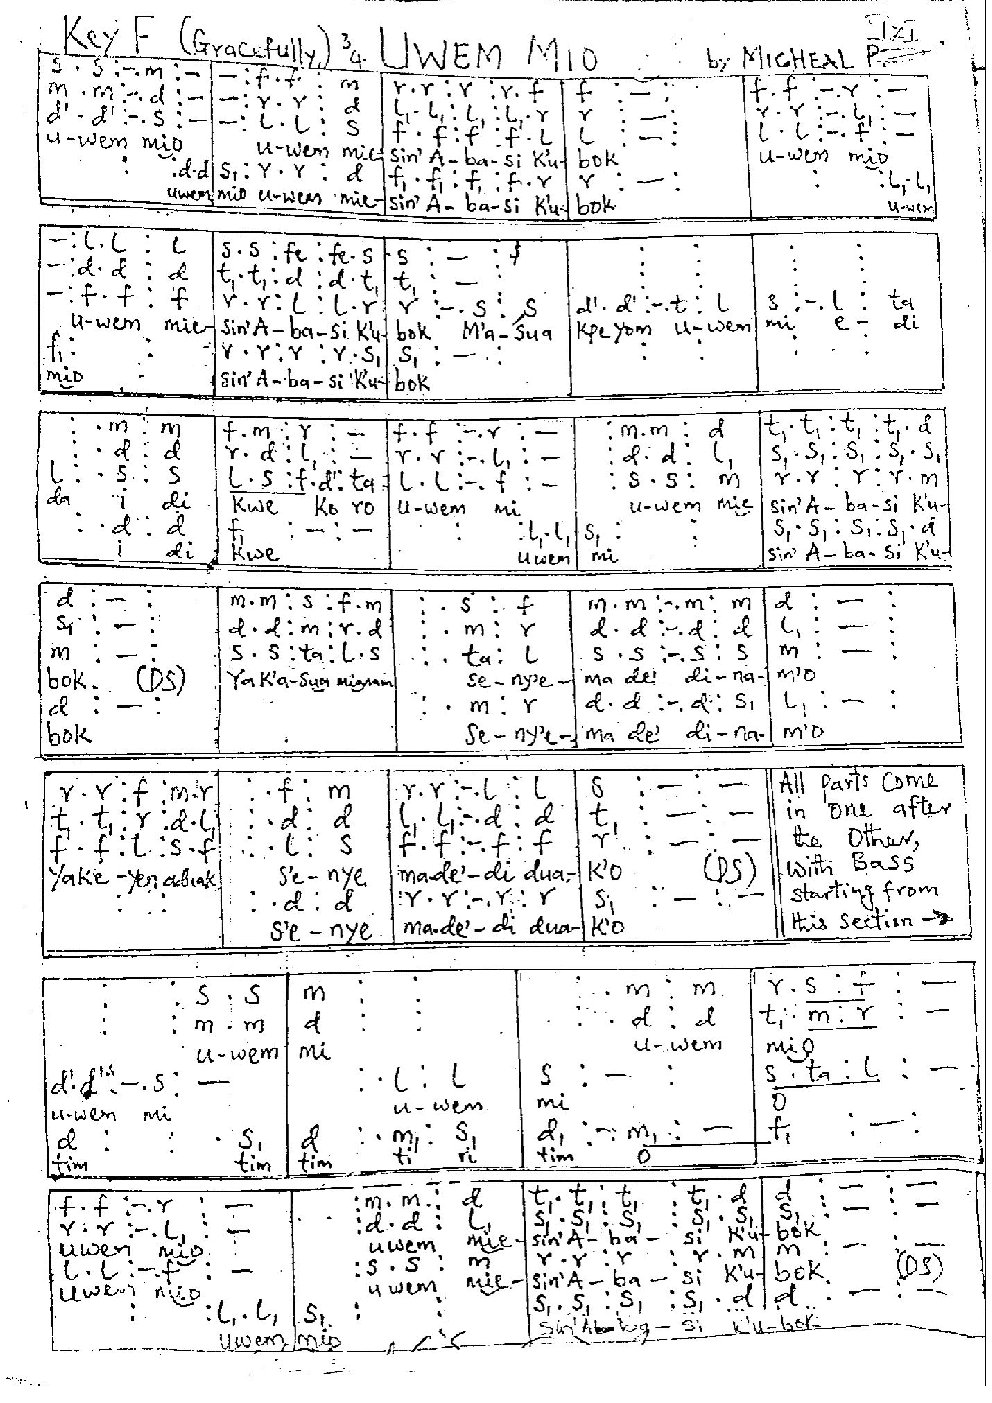 Key F (Gracefully) 3/4 UWEM MIO by MICHEAL P.
s . s : - . m : - | - : f . f : m | r . r : r : r . f | f : - : | f . f : - . r : -
m . m : - . d : - | - : r . r : d | l₁ . l₁ : l₁ : l₁ . r | r : - : | r . r : - . l₁ : -
d' . d' : - . s : - | - : l . l : s | f . f : f : f . l | l : - : | l . l : - . f : -
u-wem mio | u-wem mie- | sin' A-ba-si K'u- | bok | u-wem mio
: : . d . d | s₁ : r . r : d | f₁ . f₁ : f₁ : f₁ . r | r : - : | : : l₁ . l₁
uwem | mio u-wem mie- | sin' A-ba-si K'u- | bok | u-wem
- : l . l : l | s . s : fe : fe . s | s : - : f | : : | : :
- : d . d : d | t₁ . t₁ : d : d . t₁ | t₁ : - : | : : | : :
- : f . f : f | r . r : l : l . r | r : - . s : s | d' . d' : - . t : l | s : - . l : ta
u-wem mie- | sin' A-ba-si K'u- | bok M'a-sua | Kpe yom u-wem | mi e- di
f₁ : : | r . r : r : r . s₁ | s₁ : - : | : : | : :
mio | sin' A-ba-si 'Ku- | bok
: . m : m | f . m : r : - | f . f : - . r : - | : m . m : d | t₁ . t₁ : t₁ : t₁ . d
: . d : d | r . d : l₁ : - | r . r : - . l₁ : - | : d . d : l₁ | s₁ . s₁ : s₁ : s₁ . s₁
l : . s : s | l . s : f . d' : ta | l . l : - . f : - | : s . s : m | r . r : r : r . m
da i di | Kwe Ko ro | u-wem mi | u-wem mie | sin' A-ba-si K'u-
: . d : d | f₁ : - : - | : : l₁ . l₁ | s₁ : : | s₁ . s₁ : s₁ : s₁ . d
i di | Kwe | uwem | mi | sin' A-ba-si K'u-
d : - : | m . m : s : f . m | : . s : f | m . m : - . m : m | d : - :
s₁ : - : | d . d : m : r . d | : . m : r | d . d : - . d : d | l₁ : - :
m : - : | s . s : ta : l . s | : . ta : l | s . s : - . s : s | m : - :
bok. (DS) | Ya K'a-sua mignam | se-ny'e- | ma de' di-na- | m'o
d : - : | : : | : . m : r | d . d : - . d : s₁ | l₁ : - :
bok | Se-ny'e- | ma de' di-na- | m'o
r . r : f : m . r | : . f : m | r . r : - . l : l | s : - : - | All parts come
t₁ . t₁ : r : d . l₁ | : . d : d | l₁ . l₁ : - . d : d | t₁ : - : - | in one after
f . f : l : s . f | : . l : s | f . f : - . f : f | r : - : - | the other,
Yake-yen abiak | s'e-nye | ma de'-di dua- | K'O (DS) | with Bass
: : | : . d : d | r . r : - . r : r | s₁ : - : - | starting from
s'e-nye | ma de'-di dua- | K'O | this section →
: : s . s | m : : | : . m : m | r . s : f : -
: : m . m | d : : | : . d : d | t₁ . m : r : -
u-wem | mi | u-wem | mio
d' . d' : - . s : - | : . l : l | s : - : | s . ta : l : -
u-wem mi | u-wem | mi | O
d : : s₁ | d : . m₁ : s₁ | d₁ : - . m₁ : - | f₁ : - :
tim tim | tim ti ri | tim O
f . f : - . r : - | : m . m : d | t₁ . t₁ : t₁ : t₁ . d | d : - : -
r . r : - . l₁ : - | : d . d : l₁ | s₁ . s₁ : s₁ : s₁ . s₁ | s₁ : - : -
uwem mio | uwem mie- | sin' A-ba- si K'u- | bok
l . l : - . f : - | : s . s : m | r . r : r : r . m | m : - : -
uwem mio | uwem mie- | sin' A-ba-si K'u- | bok. (DS)
: : l₁ . l₁ | s₁ : : | s₁ . s₁ : s₁ : s₁ . d | d : - : -
uwem | mio | sin' A-ba-si K'u-bok